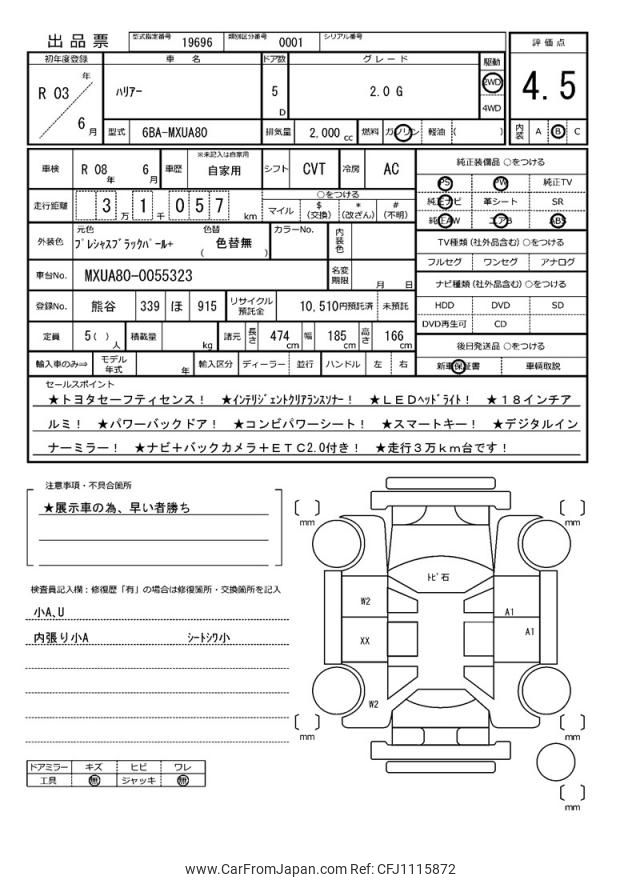 出品票
型式指定番号 19696 類別区分番号 0001 シリアル番号
評価点
4.5
内装 A B C
初年度登録 車名 ドア数 グレード 駆動
R 03 年 6 月
ハリアー
5 D
2.0 G
2WD
4WD
型式 6BA-MXUA80 排気量 2,000 cc 燃料 ガソリン 軽油 ( )
車検 R 08 年 6 月 車歴 ※未記入は自家用 自家用 シフト CVT 冷房 AC
走行距離 3 万 1 千 0 5 7 km
○をつける
マイル $ (交換) * (改ざん) # (不明)
外装色 元色 プレシャスブラックパール+ 色替 ( 色替無 ) カラーNo. 内装色
車台No. MXUA80-0055323 名変期限 月 日
登録No. 熊谷 339 ほ 915 リサイクル預託金 10,510円預託済 未預託
定員 5( )人 積載量 kg 諸元 長さ 474 cm 幅 185 cm 高さ 166 cm
輸入車のみ⇒ モデル年式 年 輸入区分 ディーラー 並行 ハンドル 左 右
純正装備品 ○をつける
PS PW 純正TV
純正ナビ 革シート SR
純正AW エアB ABS
TV種類 (社外品含む) ○をつける
フルセグ ワンセグ アナログ
ナビ種類 (社外品含む) ○をつける
HDD DVD SD
DVD再生可 CD
後日発送品 ○をつける
新車保証書 車輌取説
セールスポイント
★トヨタセーフティセンス! ★インテリジェントクリアランスソナー! ★LEDヘッドライト! ★18インチア
ルミ! ★パワーバックドア! ★コンビパワーシート! ★スマートキー! ★デジタルイン
ナーミラー! ★ナビ+バックカメラ+ETC2.0付き! ★走行3万km台です!
注意事項・不具合箇所
★展示車の為、早い者勝ち
検査員記入欄:修復歴「有」の場合は修復箇所・交換箇所を記入
小A、U
内張り小A シートシワ小
ドアミラー キズ ヒビ ワレ
工具 無 ジャッキ 無
mm
mm
トビ石
W2
A1
XX
A1
W2
mm
mm
mm
www.CarFromJapan.com Ref: CFJ1115872